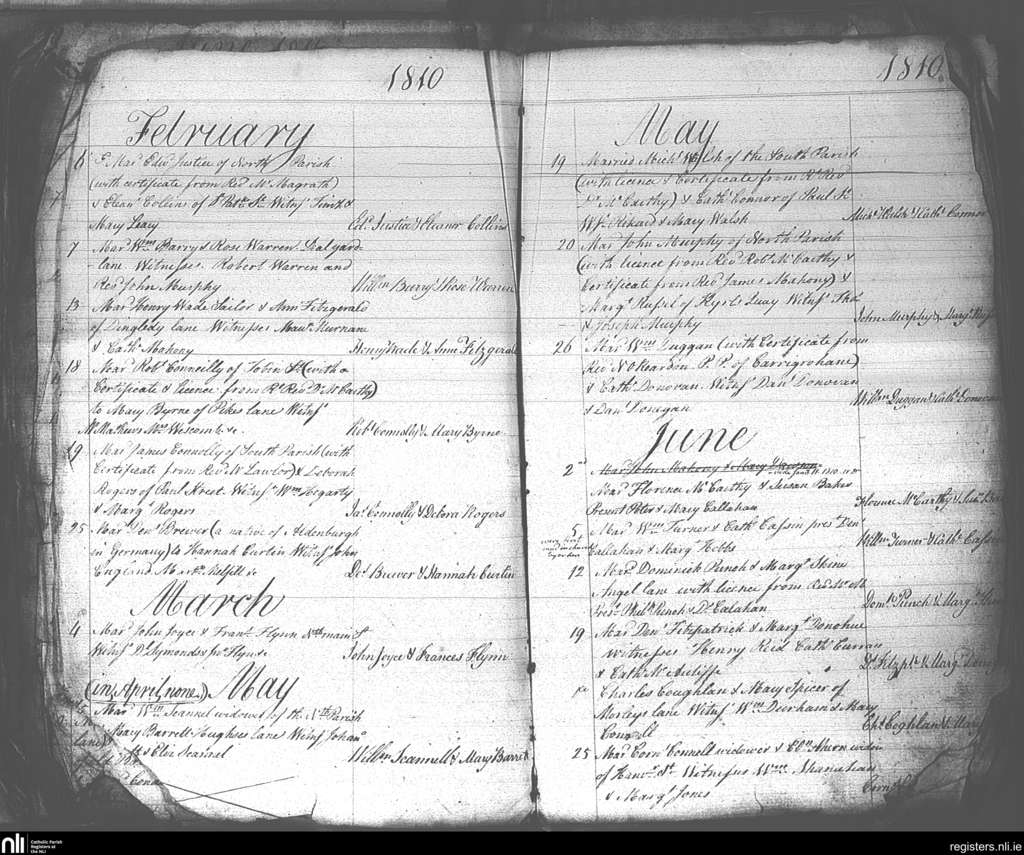 1810
February
6 Mar Edw Justice of North Parish
(with certificate from Revd Mr Magrath)
& Elean Collins of St Witns &
Mary Leary Edd Justice & Eleanor Collins
7 Mar Wm Barry & Rose Warren
lane Witnesses. Robert Warren and
Revd John Murphy Willm Barry & Rose Warren
13 Mar Henry Wade Tailor & Ann Fitzgerald
of lane Witnesses Murnane
& Cath Mahony Henry Wade & Anne Fitzgerald
18 Mar Robt Connolly of Tobin St (with a
Certificate & licence from Rt Revd Dr McCarthy)
to Mary Byrne of Pikes lane Witns
Mathews Mrs Wescomb &c. Robt Connolly & Mary Byrne
19 Mar James Connolly of South Parish (with
Certificate from Revd Mr Lawlor) & Deborah
Rogers of Paul Street Witns Wm Hegarty
& Margt Rogers Jas Connolly & Debora Rogers
25 Mar Den Brewer (a native of Oldenburgh
in Germany) to Hannah Curtin Witns John
England &c Ds Brewer & Hannah Curtin
March
4 Mar John Joyce & Frans Flynn Nth main St
Witns Ds Symondes Flyn &c John Joyce & Frances Flynn
(in April none) May
Mar Wm Scannel widower of the Nth Parish
Mary Barrett Hughses Lane Witns Johan
& Eliz Scannel Willm Scannell & Mary Barrett
1810
May
19 Married Michl Walsh of the South Parish
(with licence & Certificate from Rt Revd
Dr McCarthy) & Cath Connor of Paul St
Ws Rikard & Mary Walsh Michl Walsh & Cath Connor
20 Mar John Murphy of North Parish
(with licence from Revd Robt McCarthy &
Certificate from Revd James Mahony) &
Margt Russel of Kyrls Quay Witns Thos
& Joseph Murphy John Murphy & Margt
26 Mar Wm Duggan (with Certificate from
Revd O'Reardon P.P. of Carrigrohane)
& Cath Donovan. Witns Danl Donovan
& Danl Donegan Willm Duggan & Cath Donovan
June
2nd Mar John Mahony & Mary
Mard Florence McCarthy & Susan Baker
Present Peter & Mary Callahan Florence McCarthy & Susn
5 Mar Wm Turner & Cath Cassin prest Den
Callahan & Margt Hobbs Willm Turner & Cath Cassin
12 Mar Dominick Punch & Margt Shine
Angel lane with licence from Revd
Prest Willm Punch & Ds Calahan Domk Punch & Margt
19 Mar Den Fitzpatrick & Margt Donohue
Witnesses Henry Reid Cath Curran
& Cath McAuliffe Ds Fitzpk & Margt
Charles Coughlan & Mary Spicer of
Morleys lane Witns Wm Deerham & Mary
Connell Chs Coghlan & Mary
25 Mar Corns Connell widower & Elln Ahern widow
of Hanr St Witnesses Wm Shanahan
& Margt Jones Corns
nli
Catholic Parish
Registers at
the NLI
registers.nli.ie